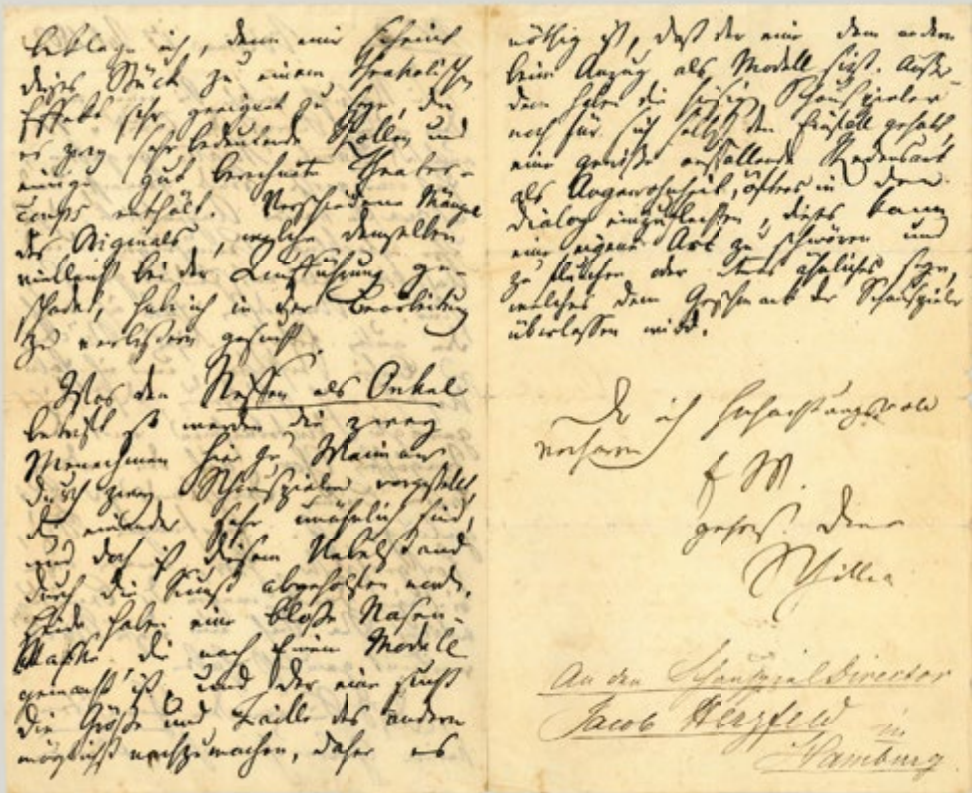 beklage ich, denn mir scheint
dieses Stück zu einem theatralischen
Effekt sehr geeignet zu seyn, da
es zwey sehr bedeutende Rollen und
einige gut berechnete Theater-
coups enthält. Verschiedene Mängel
des Originals, welche demselben
vielleicht bei der Aufführung ge-
schadet, habe ich in der Bearbeitung
zu verbessern gesucht.
Was den Neffen als Onkel
betrifft so werden die zwey
Menechmen hier zu Weimar
durch zwey Schauspieler vorgestellt,
die einander sehr unähnlich sind,
und doch ist diesem Uebelstand
durch die Kunst abgeholfen worden.
Beide haben eine bloße Nasen-
Maske die nach Einem Modell
gemacht ist, und der eine sucht
die Größe und Taille des andern
möglichst nachzumachen, daher es
nöthig ist, daß der eine dem andern
beim Anzug als Modell sizt. Außer-
dem haben die hiesigen Schauspieler
noch für sich selbst den Einfall gehabt,
eine gewisse auffallende Redensart
als Angewohnheit, öfters in den
Dialog einzuflechten, dieses kann
eine eigene Art zu schwören und
zu fluchen oder etwas ähnliches seyn,
welches dem Geschmack der Schauspieler
überlassen wird.
Der ich hochachtungsvoll
verharre
E W.
gehors. Diener
Schiller
An den Schauspieldirector
Jacob Herzfeld in
Hamburg